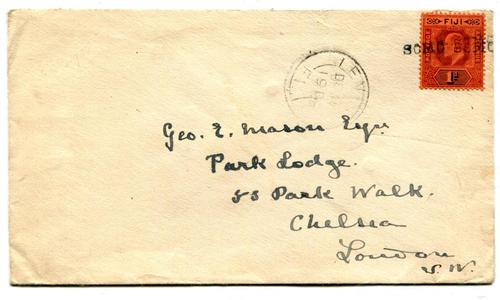 FIJI
1d
LEV
FIJI
Geo. E. Mason Esqr.
Park Lodge.
55 Park Walk.
Chelsea
London
S.W.